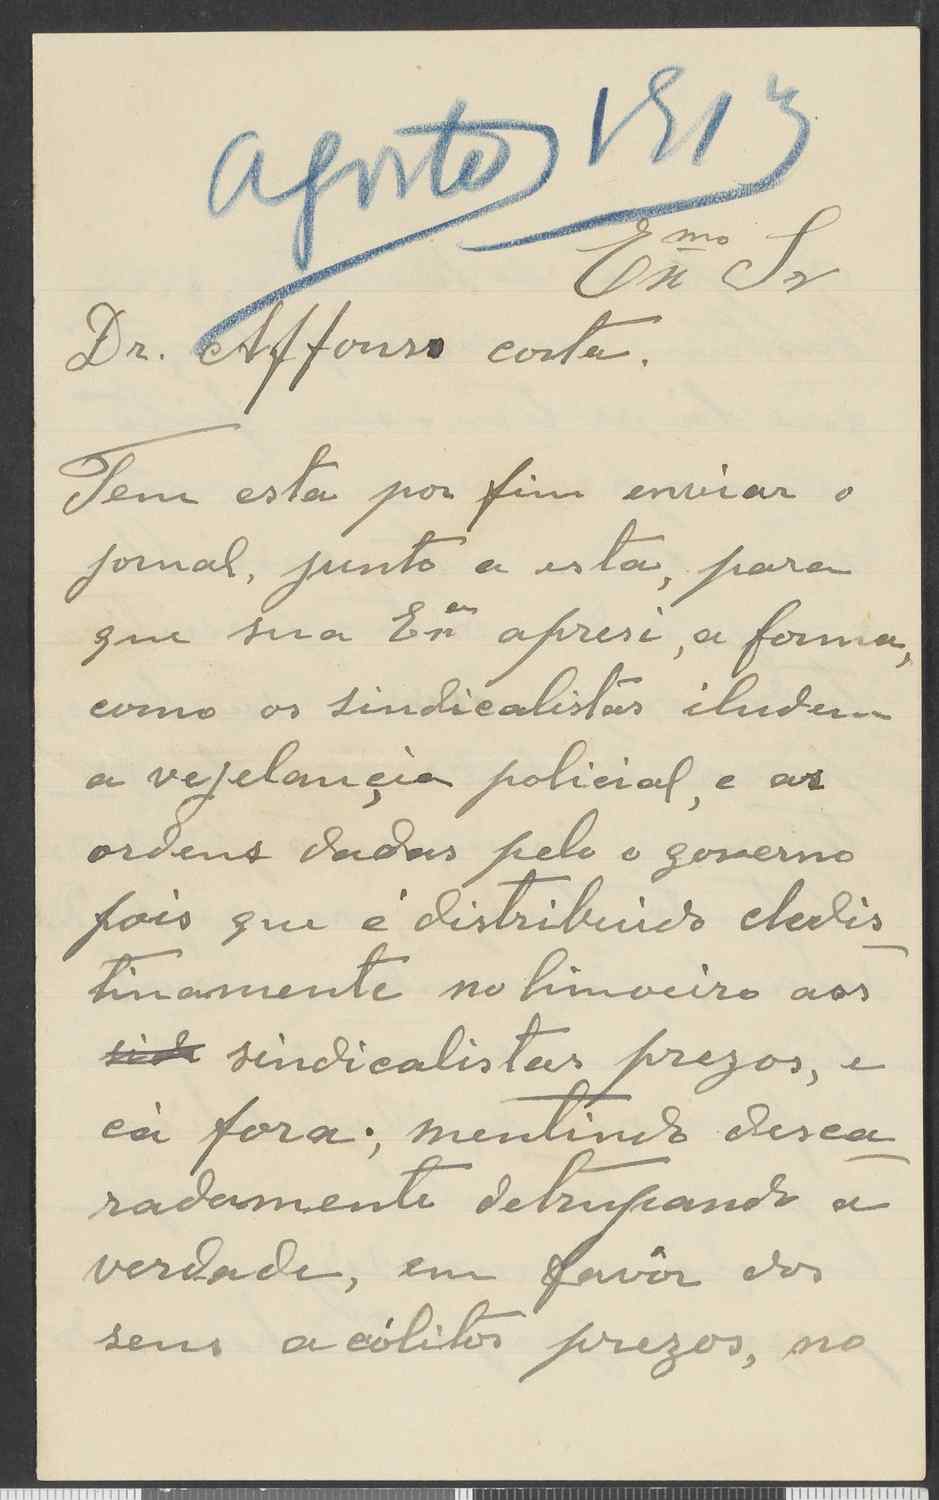 agosto 1913
Exmo Sr
Dr. Affonso costa.
Tem esta por fim enviar o
jornal, junto a esta, para
que sua Exa apresi, a forma,
como os sindicalistas iludem
a vejelançia policial, e as
ordens dadas pelo o governo
pois que é distribuido cledis
tinamente no limoeiro aos
sindicalistas prezos, e
cá fora., mentindo desca
radamente detrupando a
verdade, em favôr dos
seus acólitos prezos, no